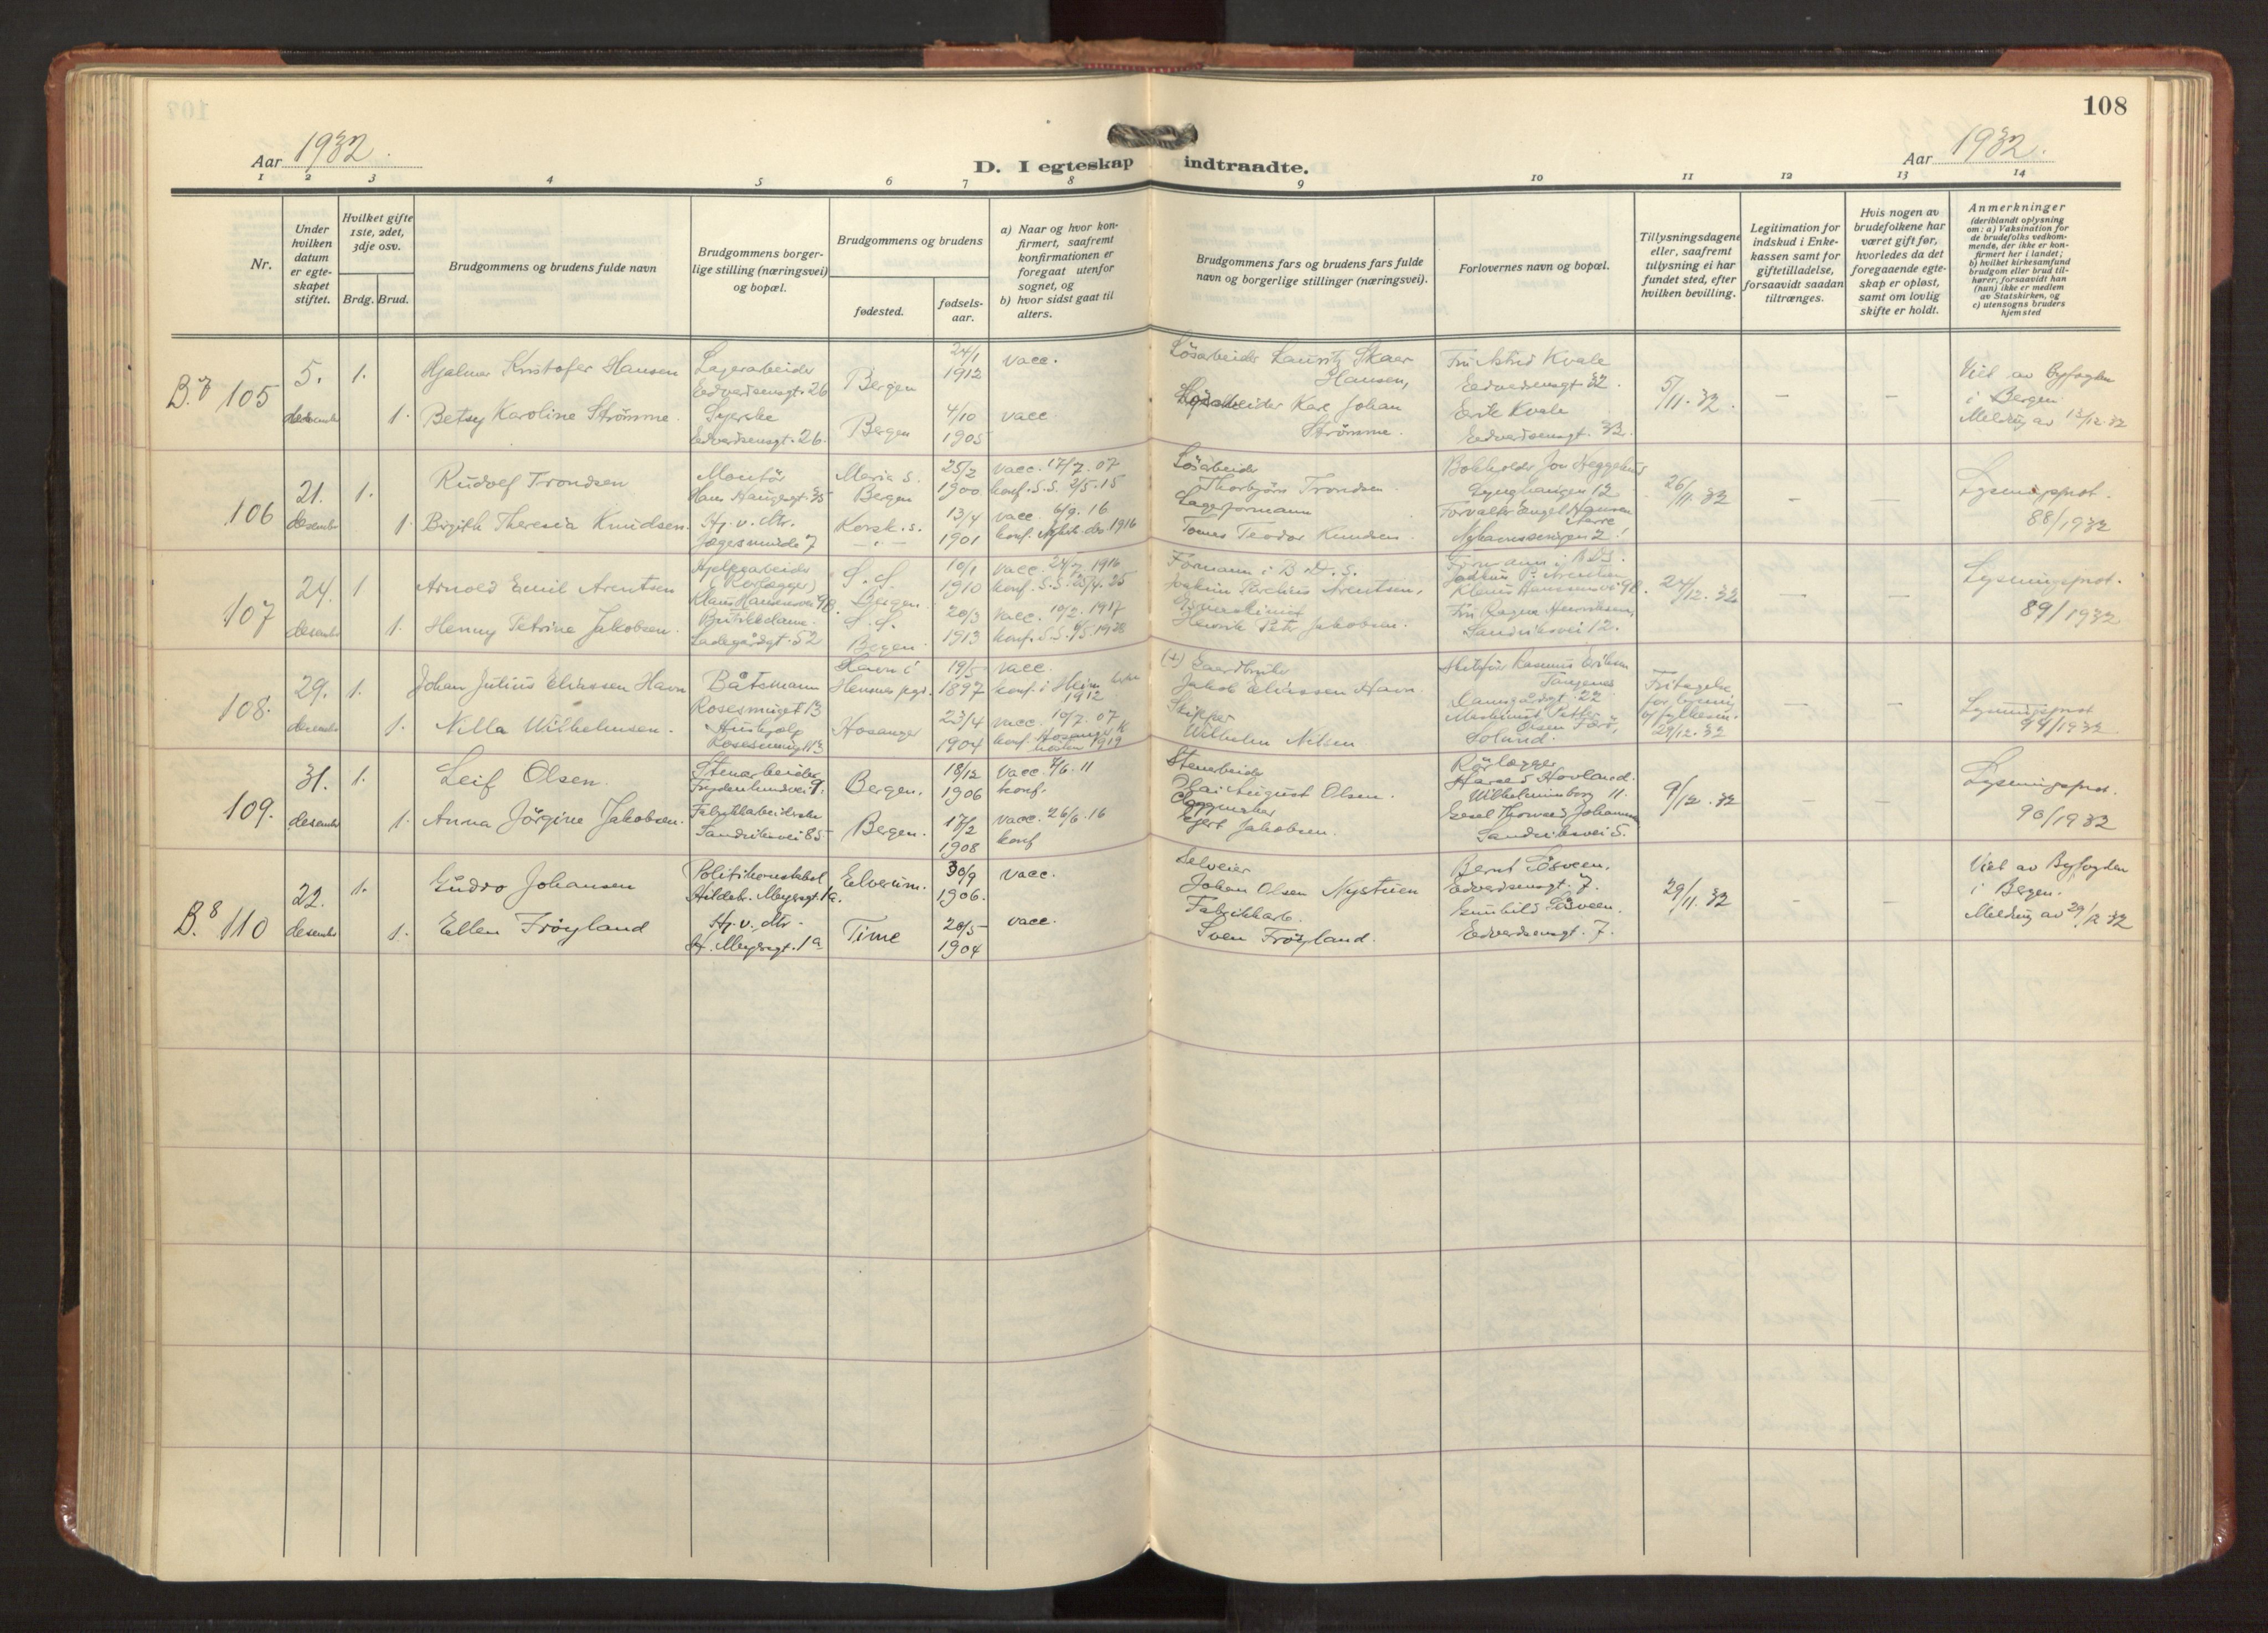 108
Aar 1932.
D. I egteskap indtraadte.
Aar 1932.
1 2 3 4 5 6 7 8 9 10 11 12 13 14
Nr.
Under
hvilken
datum
er egte-
skapet
stiftet.
Hvilket gifte
1ste, 2det,
3dje osv.
Brdg. Brud.
Brudgommens og brudens fulde navn
Brudgommens borger-
lige stilling (næringsvei)
og bopæl.
Brudgommens og brudens
fødested.
fødsels-
aar.
a) Naar og hvor kon-
firmert, saafremt
konfirmationen er
foregaat utenfor
sognet, og
b) hvor sidst gaat til
alters.
Brudgommens fars og brudens fars fulde
navn og borgerlige stillinger (næringsvei).
Forlovernes navn og bopæl.
Tillysningsdagene
eller, saafremt
tillysning ei har
fundet sted, efter
hvilken bevilling.
Legitimation for
indskud i Enke-
kassen samt for
giftetilladelse,
forsaavidt saadan
tiltrænges.
Hvis nogen av
brudefolkene har
været gift før,
hvorledes da det
foregaaende egte-
skap er opløst,
samt om lovlig
skifte er holdt.
Anmerkninger
(deriblandt oplysning
om: a) Vaksination for
de brudefolks vedkom-
mende, der ikke er kon-
firmert her i landet;
b) hvilket kirkesamfund
brudgom eller brud til-
hører, forsaavidt han
(hun) ikke er medlem
av Statskirken, og
c) utensogns bruders
hjemsted
B.7 105
5.
desember
1.
Hjalmar Kristofer Hansen
Lagerarbeider
Edvardsensgt. 26
Bergen
24/1
1912
vacc.
Løsarbeider Lauritz Skaar
Hansen,
Fru Astrid Kvale
Edvardsensgt. 32.
5/11. 32.
-
-
Viet av Byfogden
i Bergen.
Melding av 13/12. 32
1.
Betsy Karoline Strømme.
Syerske
Edvardsensgt. 26.
Bergen
4/10
1905
vacc
Løsarbeider Karl Johan
Strømme.
Erik Kvale
Edvardsensgt. 32.
106
21.
desember
1.
Rudolf Trondsen
Montör
Hans Haugesgt. 35
Maria s.
Bergen
25/2
1900
vacc. 17/7. 07
konf. S.S. 2/5. 15
Lösarbeider
Thorbjörn Trondsen.
Bokholder Jon Heggehus
Lynghaugen 12
26/11. 32
-
-
Lysningsprot.
88/1932
1.
Birgith Theresia Knudsen.
Hj. v. Mr.
Jægersmuide 7
Korsk. s.
- " -
13/4
1901
vacc. 6/9. 16
1916
Lagerformann
Tomas Teodor Knudsen.
Forvalter Engel Hansen
107
24.
desember
1
Arnold Emil Arentsen
Hjelpearbeider
(Rørlægger)
Klaus Hansensvei 98.
S. S.
Bergen.
10/1
1910
vacc. 24/7 1916
konf. S.S. 25/4. 25
Formann i B.D.S.
Arentsen,
Formann i B.D.S.
Klaus Hansensvei 98.
24/12. 32
-
-
Lysningsprot.
89/1932
1.
Henny Petrine Jakobsen.
Butikkdame.
Ladegårdsgt. 52
S. S.
Bergen.
20/3
1913
vacc. 10/2. 1917
Henrik Petr Jakobsen.
Fru Ragna Henriksen,
Sandviksvei 12.
108.
29.
desember
1.
Johan Julius Eliassen Havn
Båtsmann
Rosesmuget 13
Havn i
Hemnes pgd.
19/5
1897
vacc.
1912
(+) Gaardbruker
Jakob Eliassen Havn.
Rasmus Eriksen
Tangenes
Damsgårdsgt. 22
Fritagelse
for lysning
29/12. 32
Lysningsprot
94/1932.
1.
Nilla Wilhelmsen.
Hushjelp
Rosesmuget 13
Hosanger
23/4
1904
vacc. 19/7. 07
konf. Hosanger K
høsten 1919
Skipper
Wilhelm Nilsen
Solund.
109.
31.
desember
1.
Leif Olsen.
Stenarbeider
Frydenlundsvei 9.
Bergen.
18/12
1906
vacc. 7/6. 11
konf.
Stenarbeider
Olai August Olsen.
Rörlægger
Harald Hovland.
Wilhelminborg 11.
9/12. 32
-
-
Lysningsprot.
90/1932
1.
Anna Jörgine Jakobsen.
Fabrikkarbeiderske
Sandviksvei 85
Bergen.
17/2
1908
vacc. 26/6. 16
konf
Jakobsen.
Sandviksvei 5.
B.8 110
22.
desember
1.
Gudro Johansen
Politikonstabel
Hildebr. Meyersgt. 1a.
Elverum.
30/9
1906.
vacc.
Selveier
Johan Olsen Nystuen
Bernt Låsveen.
Edvardsensgt. 7.
29/11. 32
-
-
Viet av Byfogden
i Bergen.
Melding av 29/12 32
1.
Ellen Fröyland
Hj. v. Mr.
H. Meyersgt. 1a
Time
20/5
1904
vacc.
Fabrikkarb.
Sven Fröyland.
Gunhild Låsveen.
Edvardsensgt. 7.